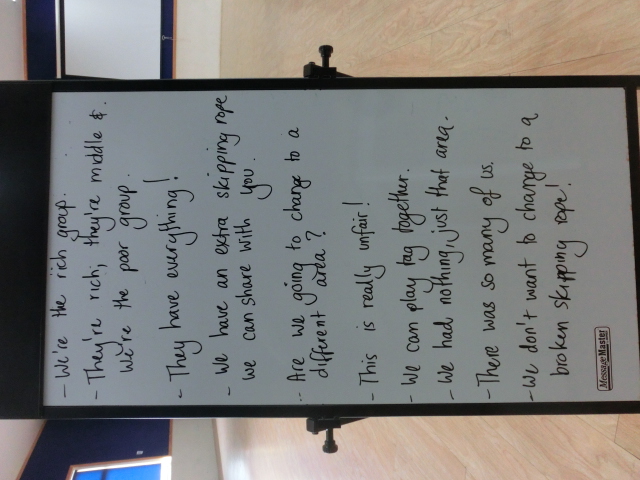 - We're the rich group.
- They're rich, they're middle &
We're the poor group.
- They have everything!
- We have an extra skipping rope
we can share with you.
- Are we going to change to a
different area?
- This is really unfair!
- We can play tag together.
- We had nothing, just that area.
- There was so many of us.
- We don't want to change to a
broken skipping rope!
MessageMaster